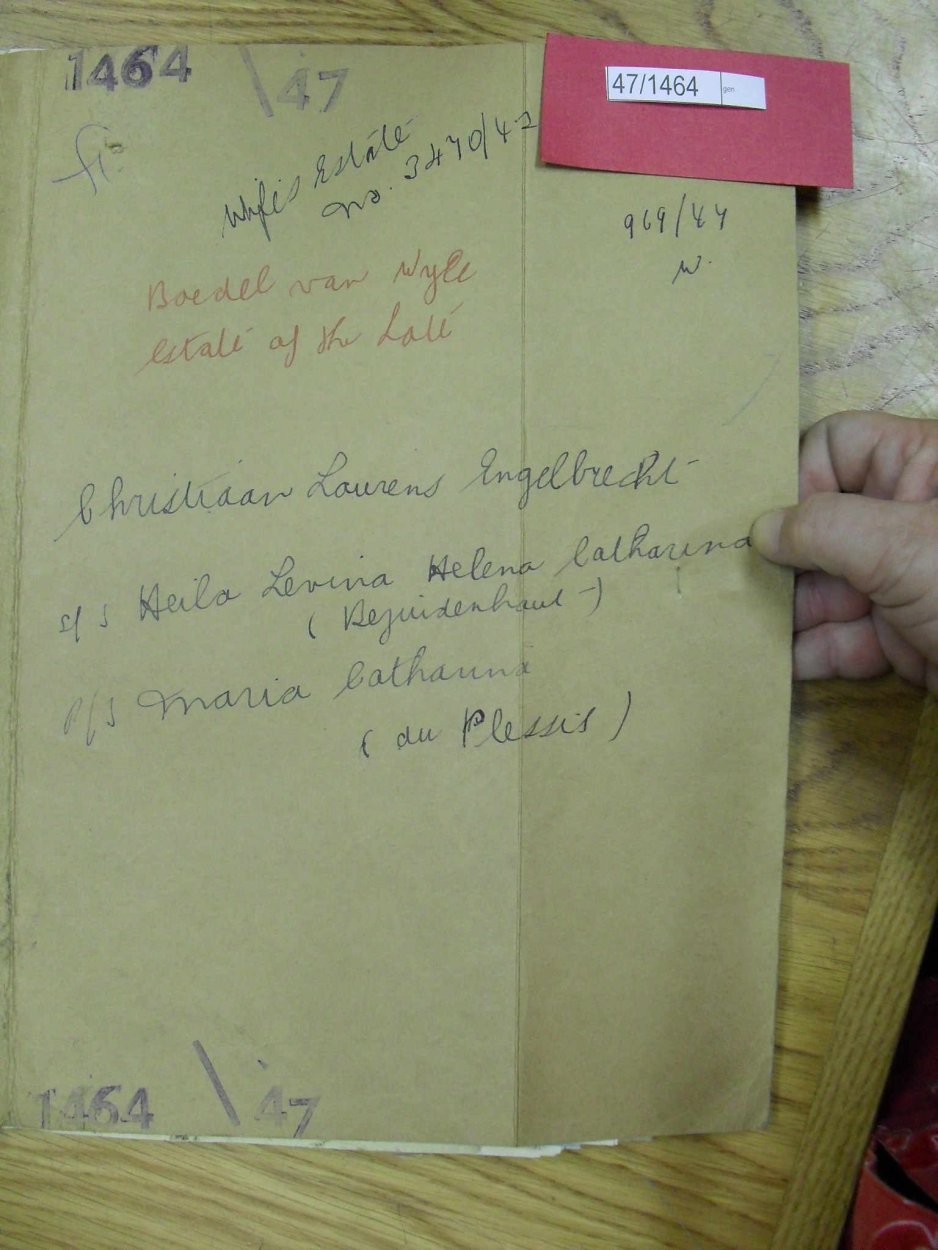 1464 \ 47
47/1464 gen
Wyfe's Estate
No. 3470/47
969/44
W.
Boedel van Wyle
Estate of the Late
Christiaan Lourens Engelbrecht
s/s Heila Levina Helena Catharina
(Bezuidenhout)
p/s Maria Catharina
(du Plessis)
1464 \ 47